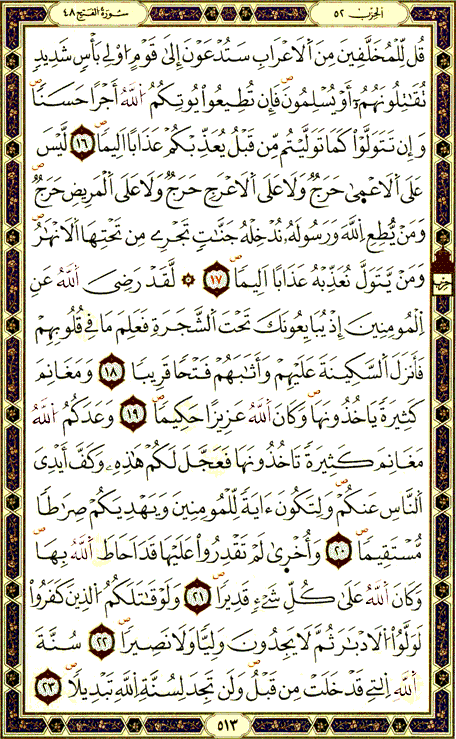 سُورَةُ الْفَتْحِ ٤٨
الحزب ٥٢
قُل لِّلْمُخَلَّفِينَ مِنَ اَلَاعْرَابِ سَتُدْعَوْنَ إِلَىٰ قَوْمٍ اُوْلِے بَأْسٖ شَدِيدٖ
تُقَٰتِلُونَهُمُۥٓ أَوْ يُسْلِمُونَ فَإِن تُطِيعُواْ يُوتِكُمُ اُللَّهُ أَجْراً حَسَناٗ
وَإِن تَتَوَلَّوْاْ كَمَا تَوَلَّيْتُم مِّن قَبْلُ يُعَذِّبْكُمْ عَذَاباً اَلِيماٗ ١٦ لَّيْسَ
عَلَى اَلَاعْم۪ىٰ حَرَجٞ وَلَا عَلَى اَلَاعْرَجِ حَرَجٞ وَلَا عَلَى اَلْمَرِيضِ حَرَجٞ
وَمَنْ يُّطِعِ اِللَّهَ وَرَسُولَهُۥ نُدْخِلْهُ جَنَّٰتٖ تَجْرِے مِن تَحْتِهَا اَلَانْهَٰرُ
وَمَنْ يَّتَوَلَّ نُعَذِّبْهُ عَذَاباً اَلِيماٗ ١٧ ۞ لَّقَد رَّضِيَ اَللَّهُ عَنِ
اِلْمُومِنِينَ إِذْ يُبَايِعُونَكَ تَحْتَ اَلشَّجَرَةِ فَعَلِمَ مَا فِے قُلُوبِهِمْ
فَأَنزَلَ اَلسَّكِينَةَ عَلَيْهِمْ وَأَثَٰبَهُمْ فَتْحاٗ قَرِيباٗ ١٨ وَمَغَانِمَ
كَثِيرَةٗ يَاخُذُونَهَا وَكَانَ اَللَّهُ عَزِيزاً حَكِيماٗ ١٩ وَعَدَكُمُ اُللَّهُ
مَغَانِمَ كَثِيرَةٗ تَاخُذُونَهَا فَعَجَّلَ لَكُمْ هَٰذِهِۦ وَكَفَّ أَيْدِيَ
اَلنَّاسِ عَنكُمْ وَلِتَكُونَ ءَايَةٗ لِّلْمُومِنِينَ وَيَهْدِيَكُمْ صِرَٰطاٗ
مُّسْتَقِيماٗ ٢٠ وَأُخْر۪ىٰ لَمْ تَقْدِرُواْ عَلَيْهَا قَدَ اَحَاطَ اَللَّهُ بِهَا
وَكَانَ اَللَّهُ عَلَىٰ كُلِّ شَےْءٖ قَدِيراٗ ٢١ وَلَوْ قَٰتَلَكُمُ اُلذِينَ كَفَرُواْ
لَوَلَّوُاْ اُلَادْبَٰرَ ثُمَّ لَا يَجِدُونَ وَلِيّاٗ وَلَا نَصِيراٗ ٢٢ سُنَّةَ
اَللَّهِ اِلتِے قَدْ خَلَتْ مِن قَبْلُ وَلَن تَجِدَ لِسُنَّةِ اِللَّهِ تَبْدِيلاٗ ٢٣
حزب
٥١٣